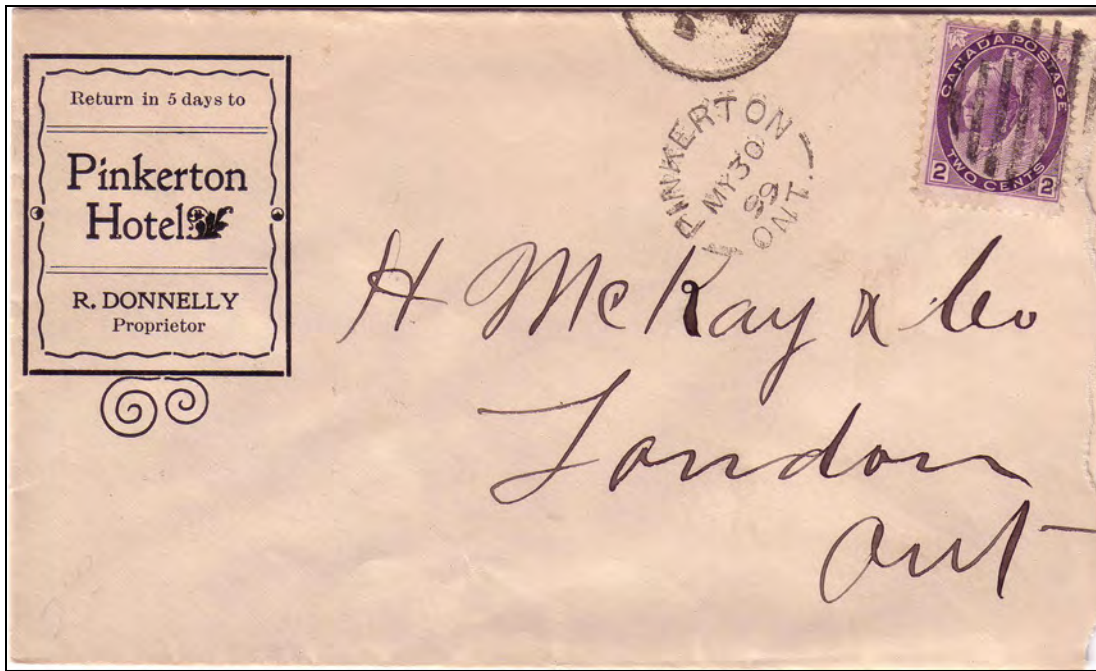 Return in 5 days to
Pinkerton
Hotel
R. DONNELLY
Proprietor
PINKERTON
MY 30
99
ONT.
CANADA POSTAGE
TWO CENTS
2 2
H McKay & Co
London
Ont